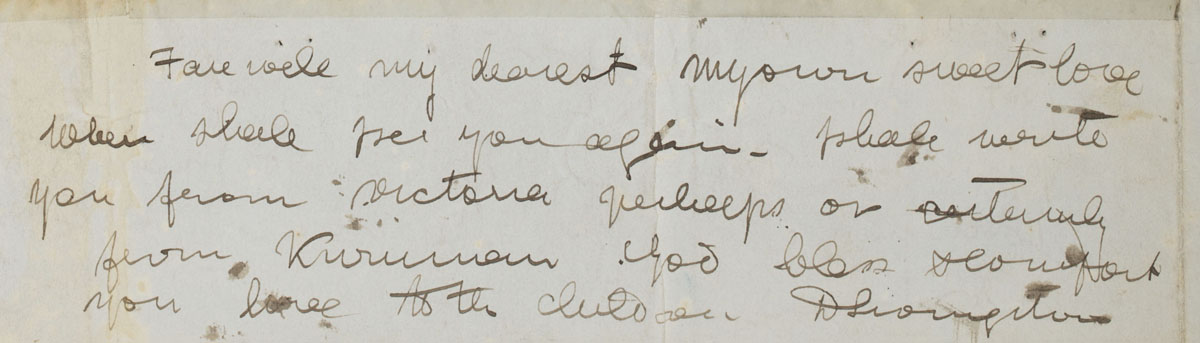 Farewell my dearest my own sweet love
when shall see you again - shall write
you from victoria perhaps or certainly
from Kuruman God bless & comfort
you love to the children D Livingston